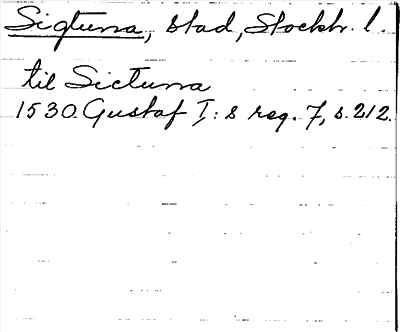 Sigtuna, stad, Stockh. l.
til Sictuna
1530 Gustaf I:s reg. 7, s. 212.